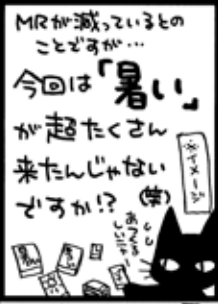 MRが減っているとの
ことですが…
今回は「暑い」
が超たくさん
来たんじゃない
ですか!?(笑)
※イメージ
あつくる
しいニャー